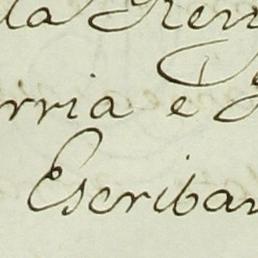 la Ren
rria e
Escriban